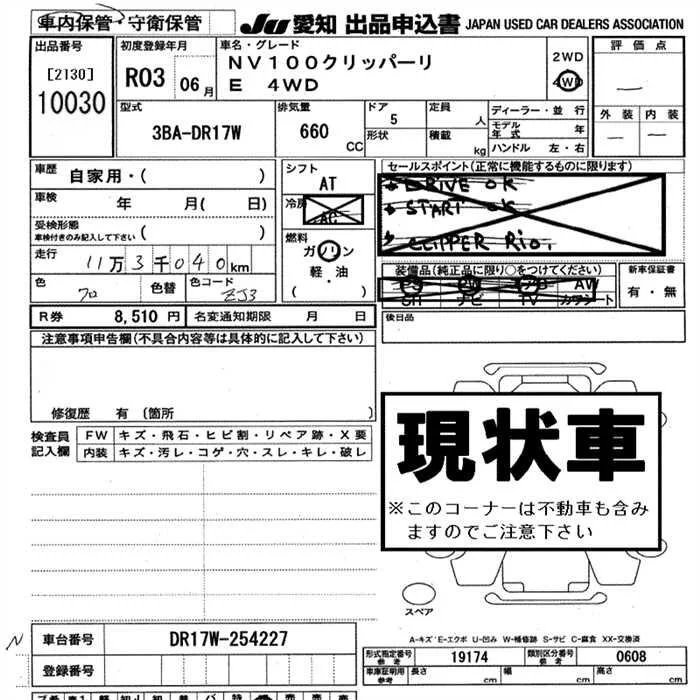 車内保管・守衛保管
JU 愛知 出品申込書 JAPAN USED CAR DEALERS ASSOCIATION
出品番号
[2130]
10030
初度登録年月
R03 06月
車名・グレード
NV100クリッパーリ
E 4WD
2WD
4WD
評価点
—
外装 内装
— —
型式
3BA-DR17W
排気量
660
CC
ドア
5
形状
定員
人
積載
kg
ディーラー・並行
モデル年式 年
ハンドル 左・右
車歴
自家用・( )
車検
年 月( 日)
受検形態
車検付きのみ記入して下さい ( )
走行
11万3千040km
色
クロ
色替
色コード
ZJ3
シフト
AT
冷房
AC
燃料
ガソリン
軽・油
( )
セールスポイント(正常に機能するものに限ります)
DRIVE OK
START OK
CLIPPER RIOT
装備品(純正品に限り○をつけてください)
PS PW AB AW
SR ナビ TV カワシート
新車保証書
有・無
R券 8,510円
名変通知期限 月 日
後日品
注意事項申告欄(不具合内容等は具体的に記入して下さい)
修復歴 有(箇所 )
検査員記入欄
FW キズ・飛石・ヒビ割・リペア跡・X要
内装 キズ・汚レ・コゲ・穴・スレ・キレ・破レ
現状車
※このコーナーは不動車も含み
ますのでご注意下さい
スペア
A-キズ E-エクボ U-凹み W-補修跡 S-サビ C-腐食 XX-交換済
N
車台番号
DR17W-254227
登録番号
形式指定番号
参考
19174
類別区分番号
参考
0608
車庫証明用
参考
長さ
cm
幅
cm
高さ
cm